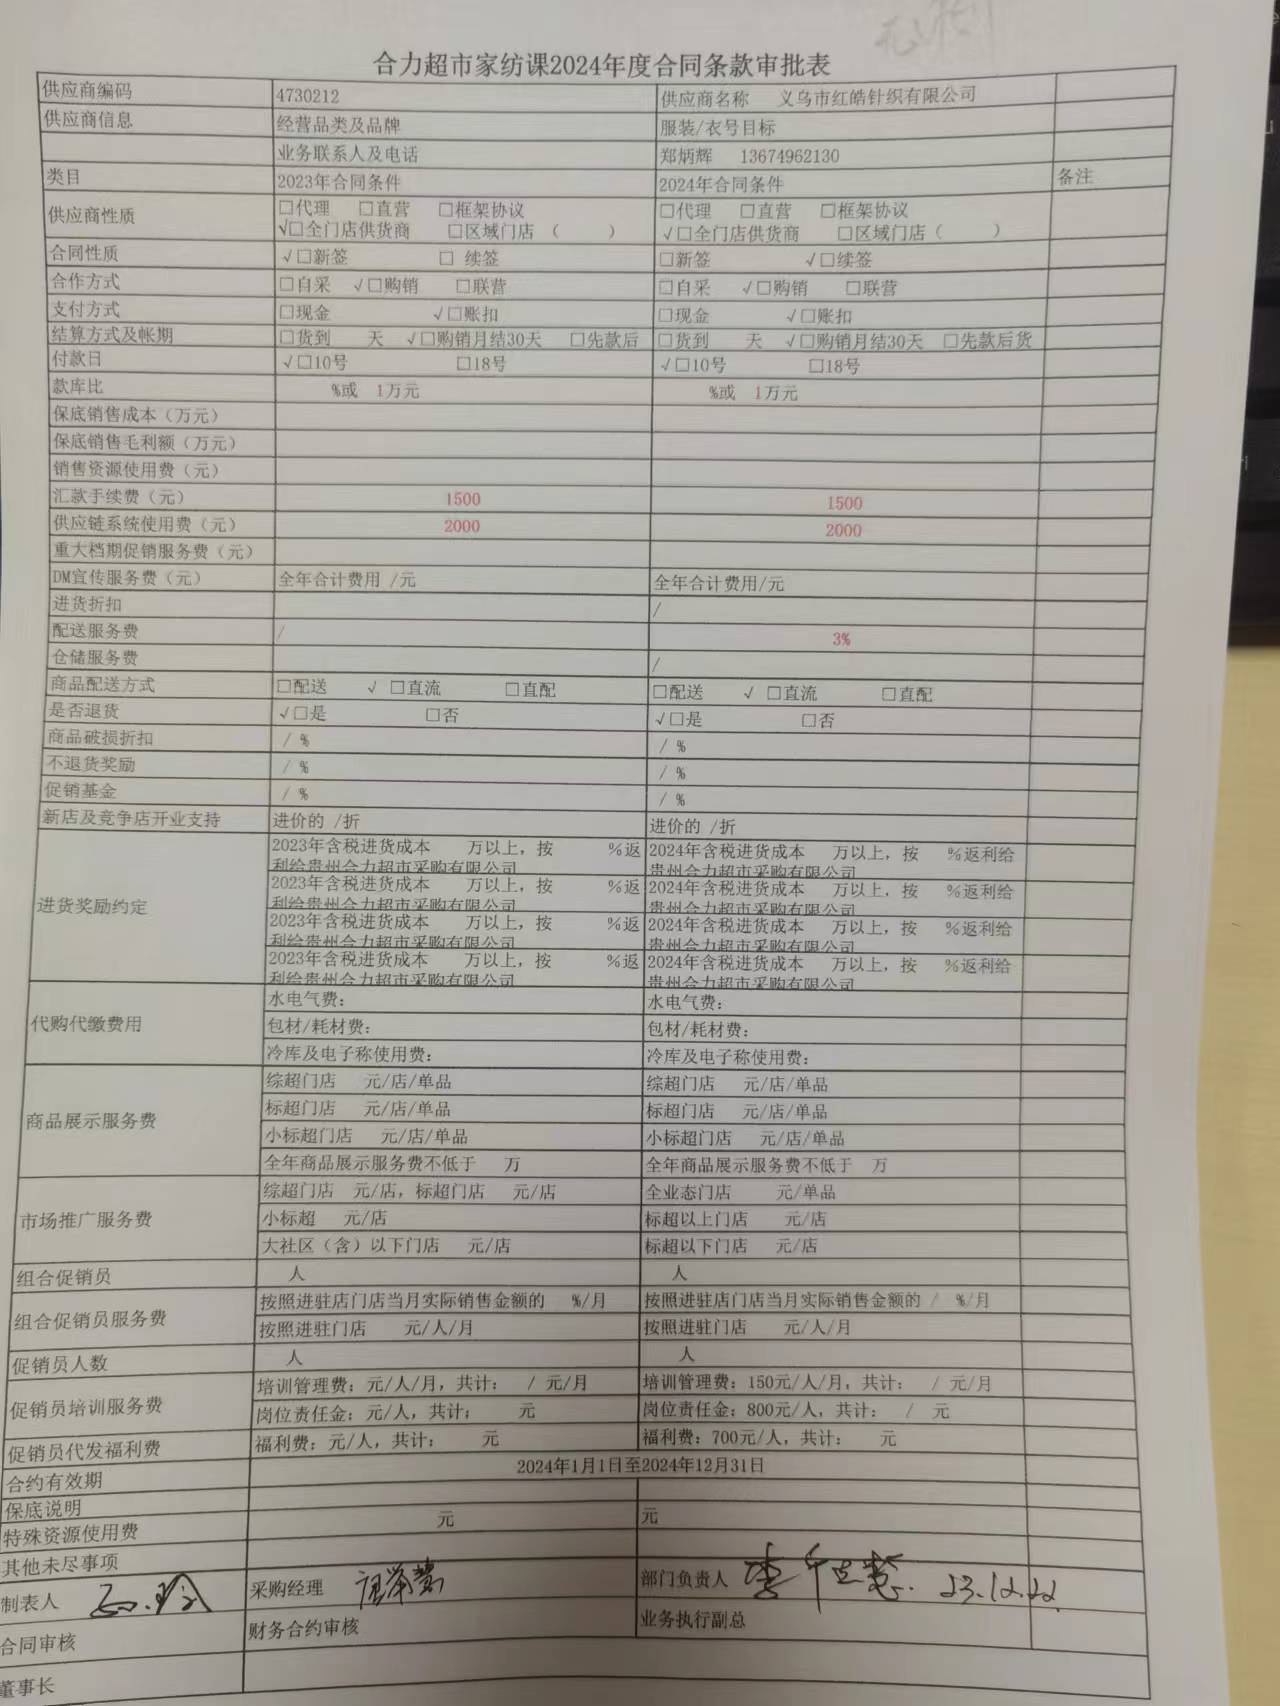 合力超市家纺课2024年度合同条款审批表
供应商编码 4730212 供应商名称 义乌市红皓针织有限公司
供应商信息 经营品类及品牌 服装/衣号目标
业务联系人及电话 郑炳辉 13674962130
类目 2023年合同条件 2024年合同条件 备注
供应商性质 □代理 □直营 □框架协议 □代理 □直营 □框架协议
√□全门店供货商 □区域门店（ ） √□全门店供货商 □区域门店（ ）
合同性质 √□新签 □ 续签 □新签 √□续签
合作方式 □自采 √□购销 □联营 □自采 √□购销 □联营
支付方式 □现金 √□账扣 □现金 √□账扣
结算方式及帐期 □货到 天 √□购销月结30天 □先款后 □货到 天 √□购销月结30天 □先款后货
付款日 √□10号 □18号 √□10号 □18号
款库比 %或 1万元 %或 1万元
保底销售成本（万元）
保底销售毛利额（万元）
销售资源使用费（元）
汇款手续费（元） 1500 1500
供应链系统使用费（元） 2000 2000
重大档期促销服务费（元）
DM宣传服务费（元） 全年合计费用 /元 全年合计费用/元
进货折扣 /
配送服务费 / 3%
仓储服务费 /
商品配送方式 □配送 √ □直流 □直配 □配送 √ □直流 □直配
是否退货 √□是 □否 √□是 □否
商品破损折扣 / % / %
不退货奖励 / % / %
促销基金 / % / %
新店及竞争店开业支持 进价的 /折 进价的 /折
进货奖励约定 2023年含税进货成本 万以上，按 %返 2024年含税进货成本 万以上，按 %返利给
利给贵州合力超市采购有限公司 贵州合力超市采购有限公司
2023年含税进货成本 万以上，按 %返 2024年含税进货成本 万以上，按 %返利给
利给贵州合力超市采购有限公司 贵州合力超市采购有限公司
2023年含税进货成本 万以上，按 %返 2024年含税进货成本 万以上，按 %返利给
利给贵州合力超市采购有限公司 贵州合力超市采购有限公司
2023年含税进货成本 万以上，按 %返 2024年含税进货成本 万以上，按 %返利给
利给贵州合力超市采购有限公司 贵州合力超市采购有限公司
代购代缴费用 水电气费： 水电气费：
包材/耗材费： 包材/耗材费：
冷库及电子称使用费： 冷库及电子称使用费：
商品展示服务费 综超门店 元/店/单品 综超门店 元/店/单品
标超门店 元/店/单品 标超门店 元/店/单品
小标超门店 元/店/单品 小标超门店 元/店/单品
全年商品展示服务费不低于 万 全年商品展示服务费不低于 万
市场推广服务费 综超门店 元/店，标超门店 元/店 全业态门店 元/单品
小标超 元/店 标超以上门店 元/店
大社区（含）以下门店 元/店 标超以下门店 元/店
组合促销员 人 人
组合促销员服务费 按照进驻店门店当月实际销售金额的 %/月 按照进驻店门店当月实际销售金额的 / %/月
按照进驻门店 元/人/月 按照进驻门店 元/人/月
促销员人数 人 人
促销员培训服务费 培训管理费：元/人/月，共计： / 元/月 培训管理费：150元/人/月，共计： / 元/月
岗位责任金：元/人，共计： 元 岗位责任金：800元/人，共计： / 元
促销员代发福利费 福利费：元/人，共计： 元 福利费：700元/人，共计： 元
合约有效期 2024年1月1日至2024年12月31日
保底说明
特殊资源使用费 元 元
其他未尽事项
制表人 采购经理 部门负责人 23.12.22
合同审核 财务合约审核 业务执行副总
董事长